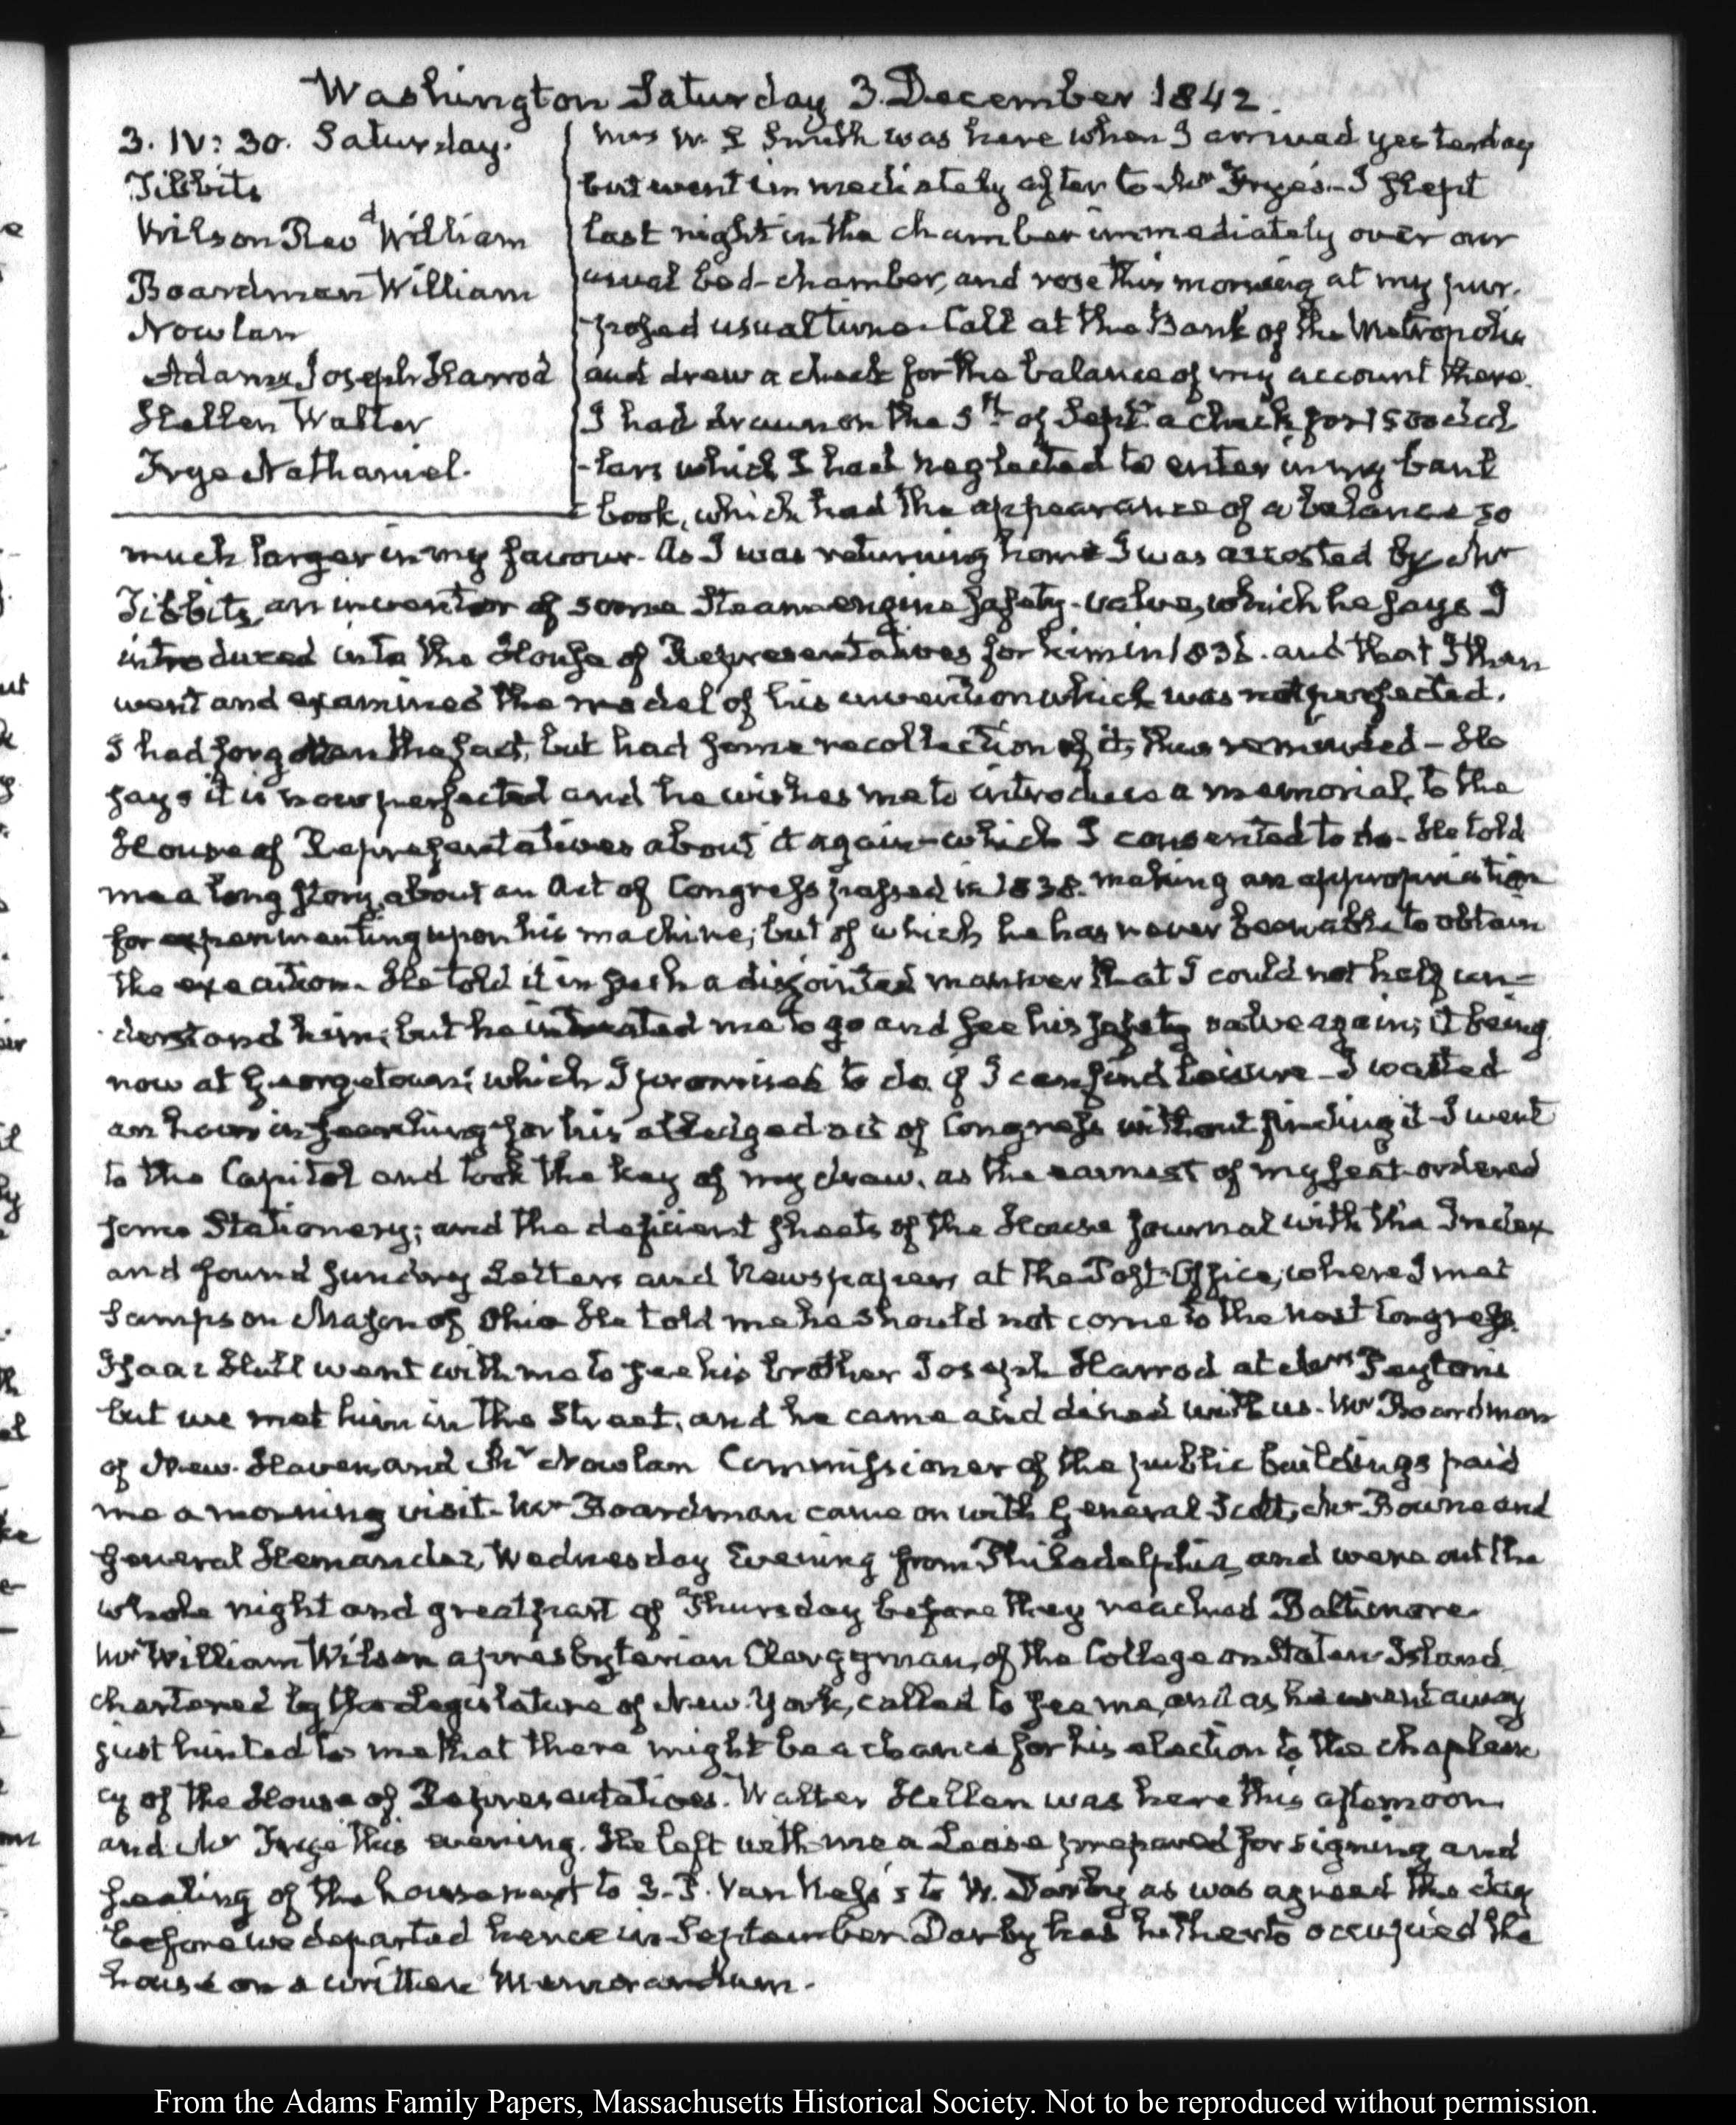 Washington Saturday 3. December 1842.
3. IV: 30. Saturday.
Tibbits
Wilson Revd William
Boardman William
Nowlan
Adams Joseph Harrod
Hellen Walter
Frye Nathaniel.
Mrs W. S Smith was here when I arrived yesterday
but went immediately after to Mrs Frye's. I slept
last night in the chamber immediately over our
usual bed-chamber, and rose this morning at my pur-
-posed usual time. Call at the Bank of the Metropolis
and drew a check for the balance of my account there.
I had drawn on the 5th of Septr a check for 1500 dol
-lars which I had neglected to enter in my bank
book, which had the appearance of a balance so
much larger in my favour. As I was returning home I was accosted by Mr
Tibbits, an inventor of some Steam engine safety-valve, which he says I
introduced into the House of Representatives for him in 1836. and that I then
went and examined the model of his invention which was not perfected.
I had forgotten the fact, but had some recollection of it, thus reminded – He
says it is now perfected and he wishes me to introduce a memorial, to the
House of Representatives about it again – which I consented to do – He told
me a long story about an Act of Congress passed in 1838. making an appropriation
for experimenting upon his machine; but of which he has never been able to obtain
the execution. He told it in such a disjointed manner that I could not help un-
derstand him; but he intreated me to go and see his safety valve again; it being
now at Georgetown; which I promised to do if I can find leisure – I wasted
an hour in searching for his alledged act of Congress without finding it – I went
to the Capitol and took the key of my draw, as the earnest of my seat – ordered
some Stationery; and the deficient sheets of the House Journal with the Index
and found sundry Letters and Newspapers at the Post-Office, where I met
Sampson Mason of Ohio He told me he should not come to the next Congress.
Isaac Hull went with me to see his brother Joseph Harrod at Mrs Peyton's
but we met him in the Street, and he came and dined with us. Mr Boardman
of New-Haven, and Mr Nowlan Commissioner of the public buildings paid
me a morning visit. Mr Boardman came on with General Scott, Mr Bourne and
General Hernandez, Wednesday Evening from Philadelphia, and were out the
whole night and great part of Thursday before they reached Baltimore.
Mr William Wilson a presbyterian Clergyman, of the College on Staten Island
chartered by the Legislature of New-York, called to see me, and as he went away
just hinted to me that there might be a chance for his election to the chaplain
cy of the House of Representatives. Walter Hellen was here this afternoon
and Mr Frye this evening. He left with me a Lease prepared for signing and
sealing of the house next to J. P. Van Ness's to W. Darby as was agreed the day
before we departed hence in September Darby has hitherto occupied the
house on a written Memorandum.
From the Adams Family Papers, Massachusetts Historical Society. Not to be reproduced without permission.